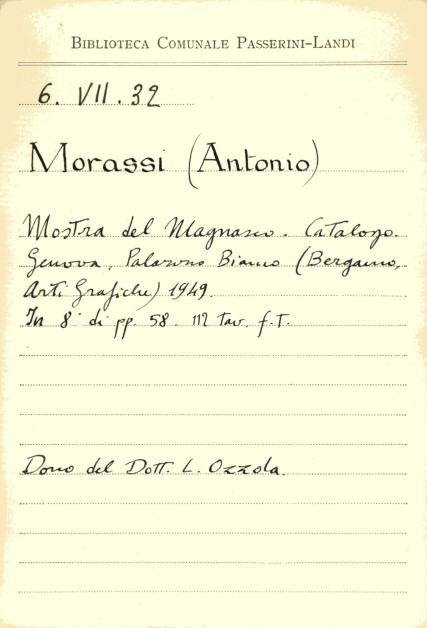 BIBLIOTECA COMUNALE PASSERINI-LANDI
6. VII. 32
Morassi (Antonio)
Mostra del Magnasco. Catalogo.
Genova, Palazzo Bianco (Bergamo,
Arti Grafiche) 1949.
In 8° di pp. 58. 112 tav. f.T.
Dono del Dott. L. Ozzola.